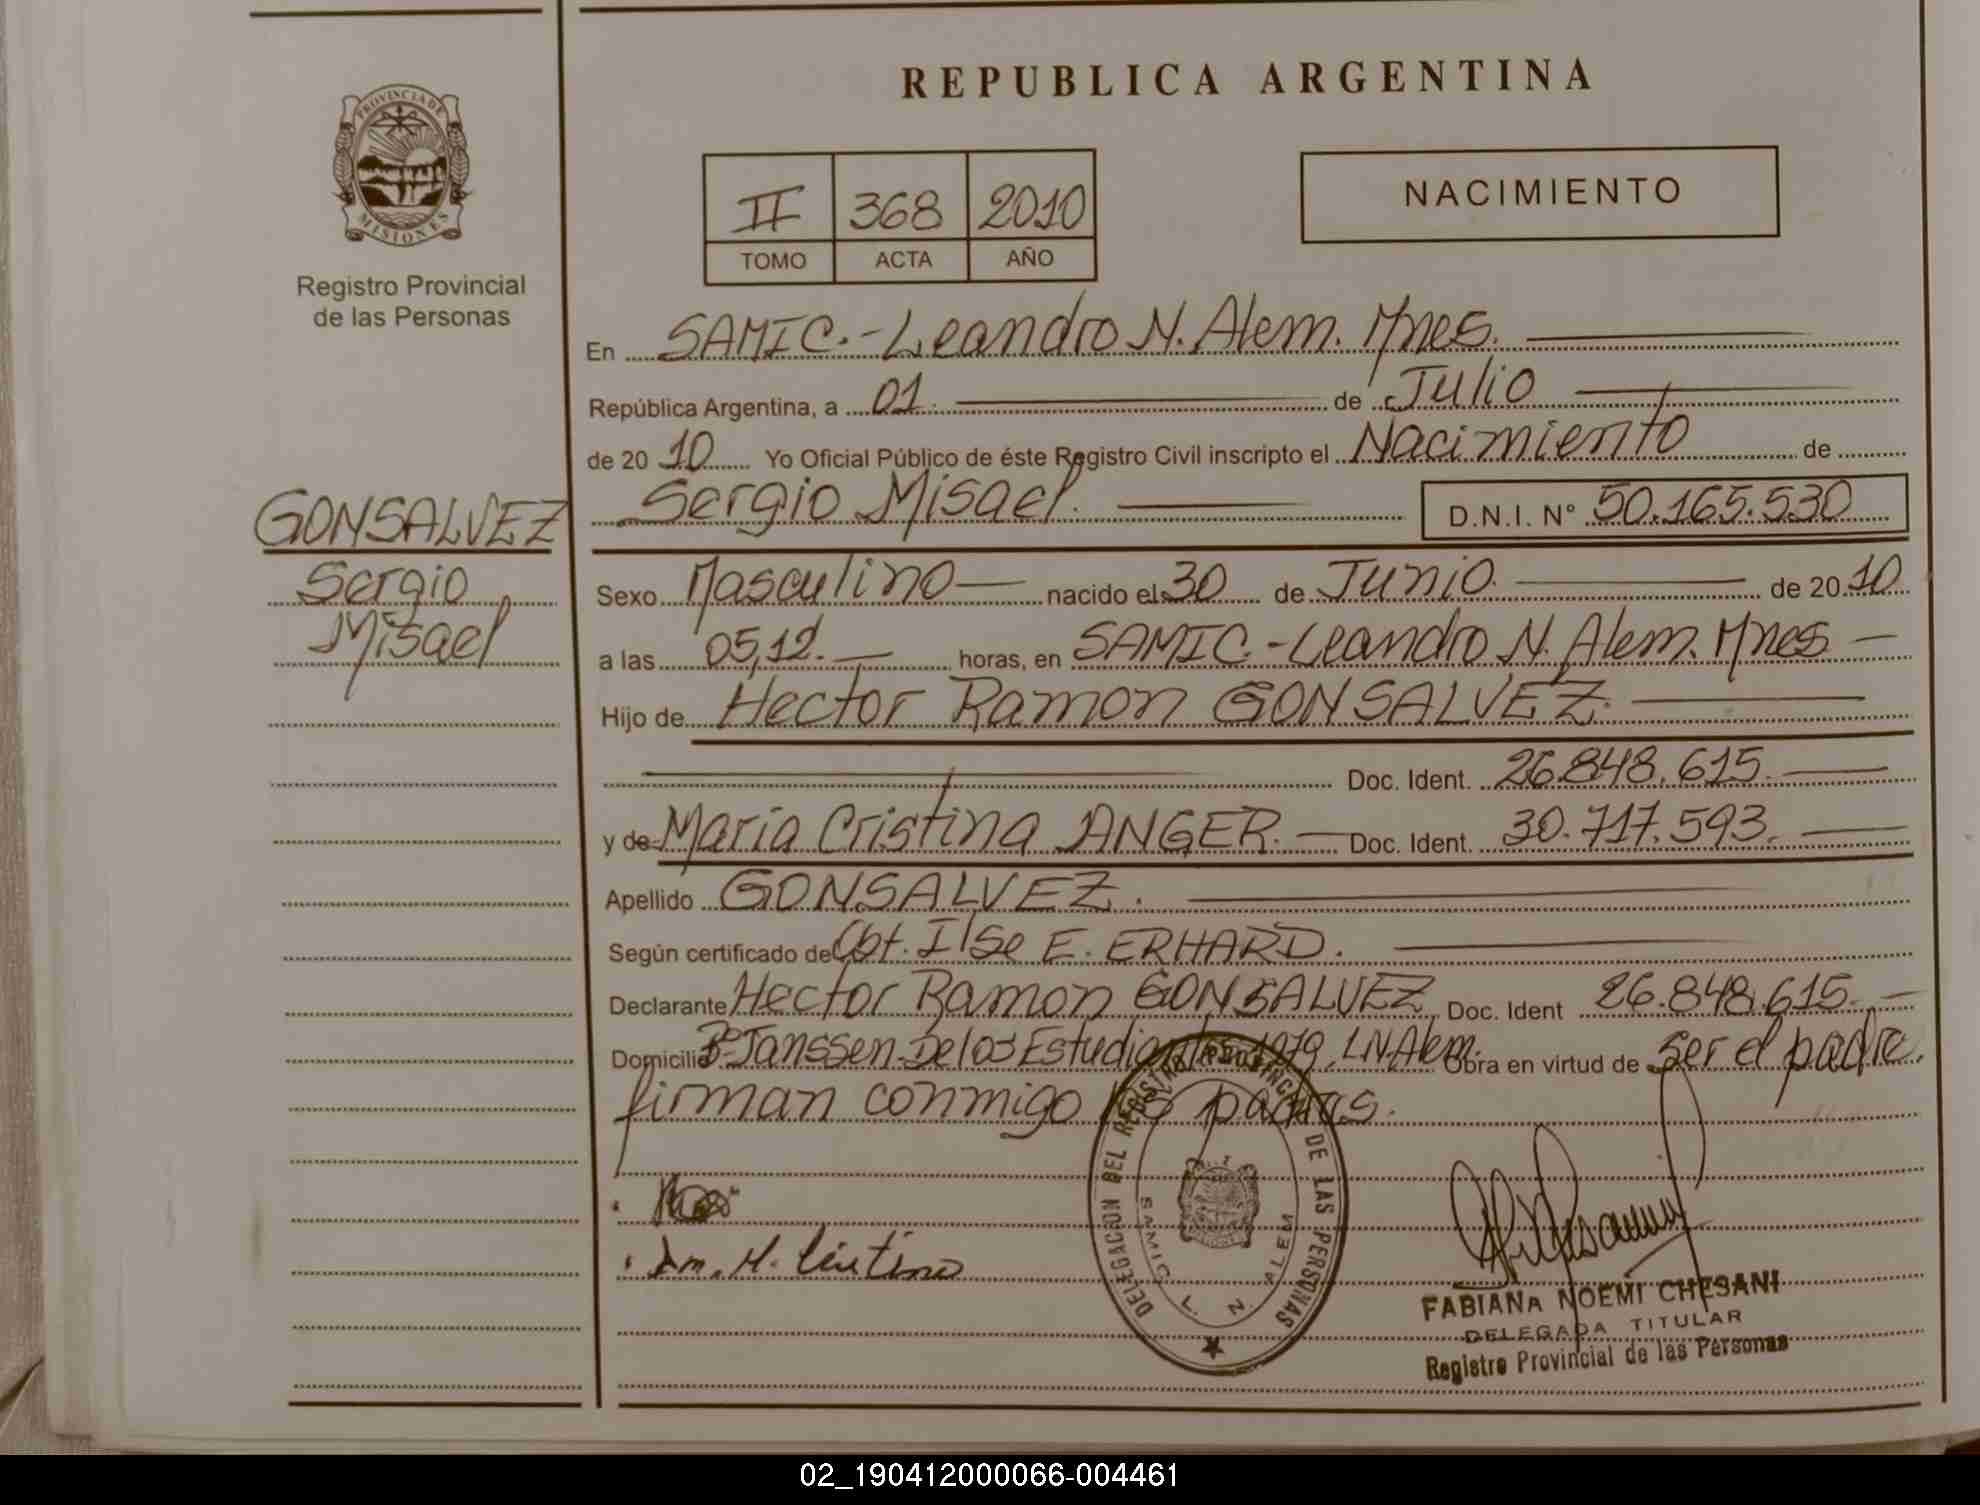 REPUBLICA ARGENTINA
PROVINCIA DE
MISIONES
Registro Provincial
de las Personas
II 368 2010
TOMO ACTA AÑO
NACIMIENTO
En SAMIC.-Leandro N. Alem. Mnes.
República Argentina, a 01. de Julio
de 20 10 Yo Oficial Público de éste Registro Civil inscripto el Nacimiento de
GONSALVEZ
Sergio
Misael
Sergio Misael. D.N.I. N° 50.165.530
Sexo Masculino nacido el 30 de Junio. de 20 10
a las 05,12. horas, en SAMIC.-Leandro N. Alem. Mnes
Hijo de Hector Ramon GONSALVEZ.
Doc. Ident. 26.848.615.
y de Maria Cristina ANGER. Doc. Ident. 30.717.593.
Apellido GONSALVEZ.
Según certificado de Obt. Ilse E. ERHARD.
Declarante Hector Ramon GONSALVEZ Doc. Ident 26.848.615.
Domicilio Bº Janssen. De los Estudiantes 1979, LN Alem. Obra en virtud de ser el padre.
firman conmigo los padres.
DELEGACION DEL REGISTRO PROVINCIAL DE LAS PERSONAS
SAMIC. L. N. ALEM
FABIANA NOEMI CHESANI
DELEGADA TITULAR
Registro Provincial de las Personas
02_190412000066-004461